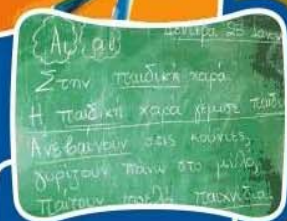 Αυ, αυ Δευτέρα, 25 Ιανου
Στην παιδική χαρά.
Η παιδική χαρά γέμισε παιδι
Ανεβαίνουν στις κούνιες,
γυρίζουν πάνω στο μύλο,
παίζουν παιχνίδια